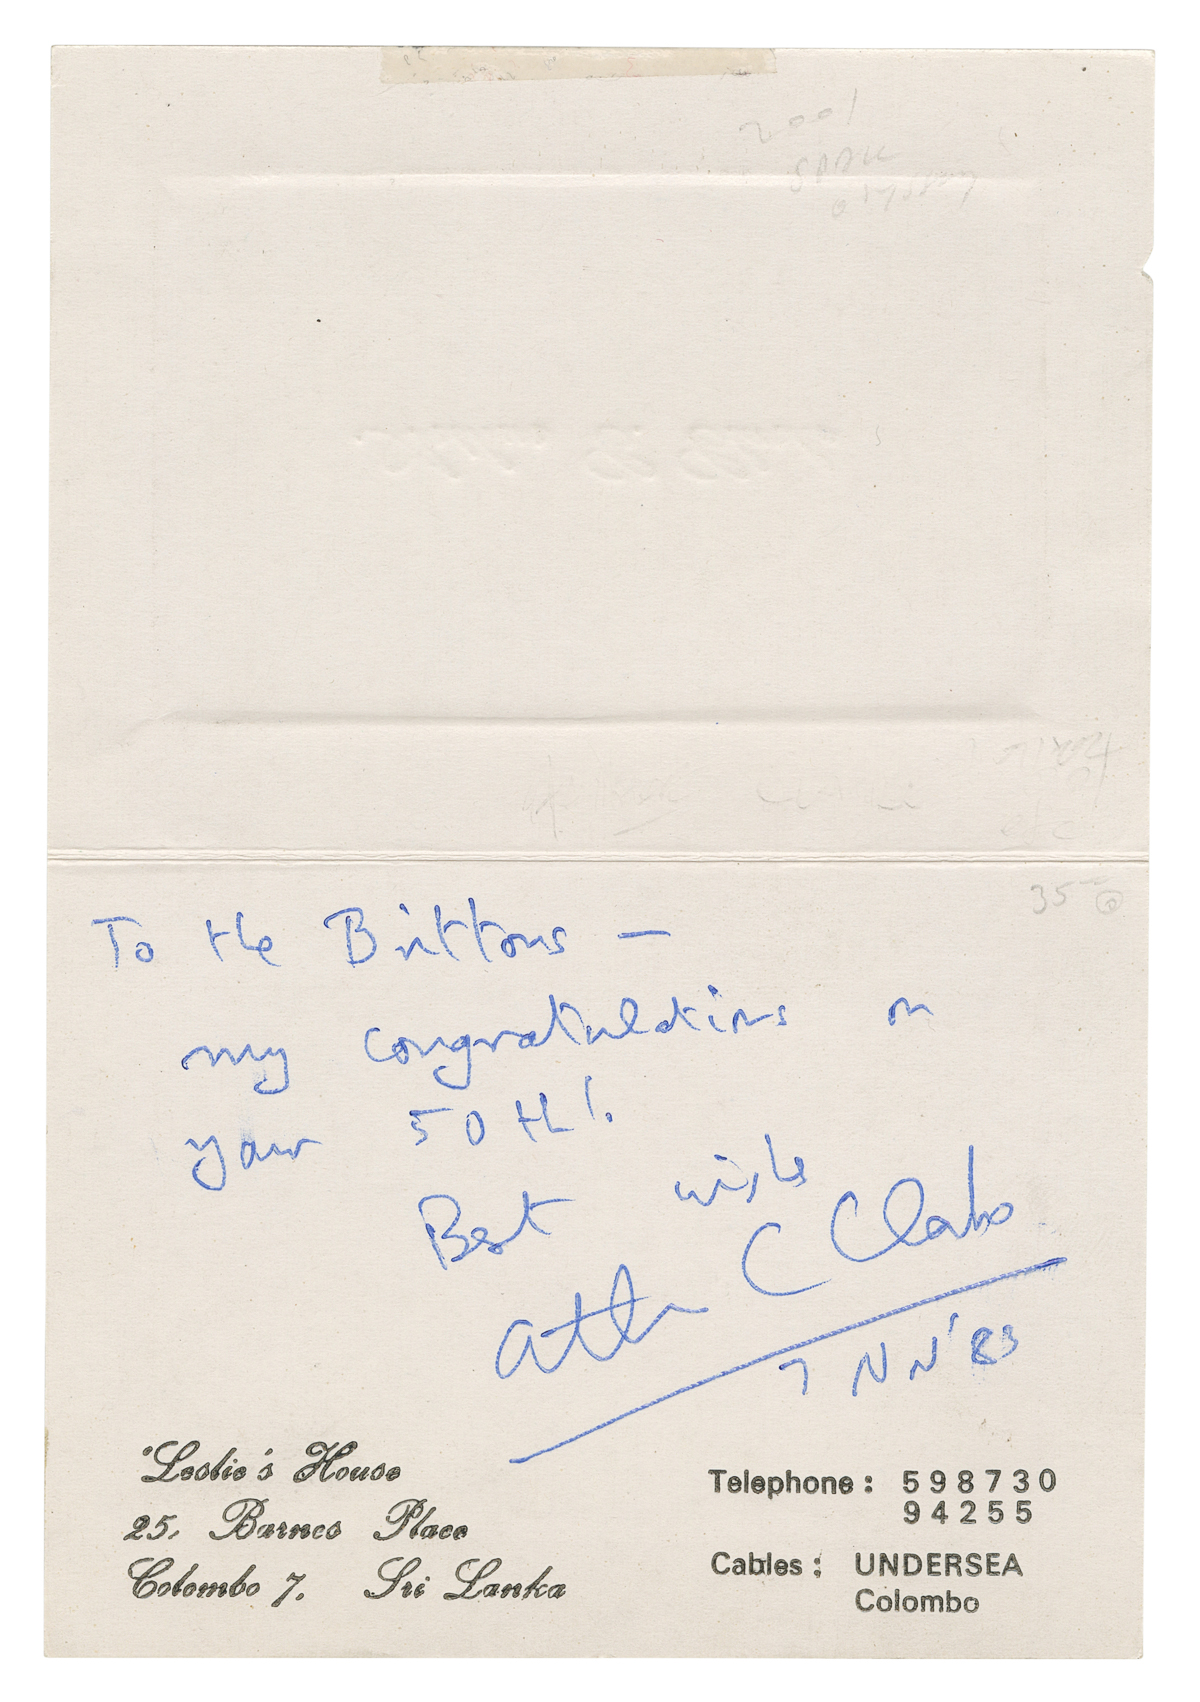 35
To the Brittons —
my congratulations on
your 50th!
Best wishes
Arthur C Clarke
7 Nov '83
'Leslie's House
25, Barnes Place
Colombo 7. Sri Lanka
Telephone : 598730
94255
Cables : UNDERSEA
Colombo